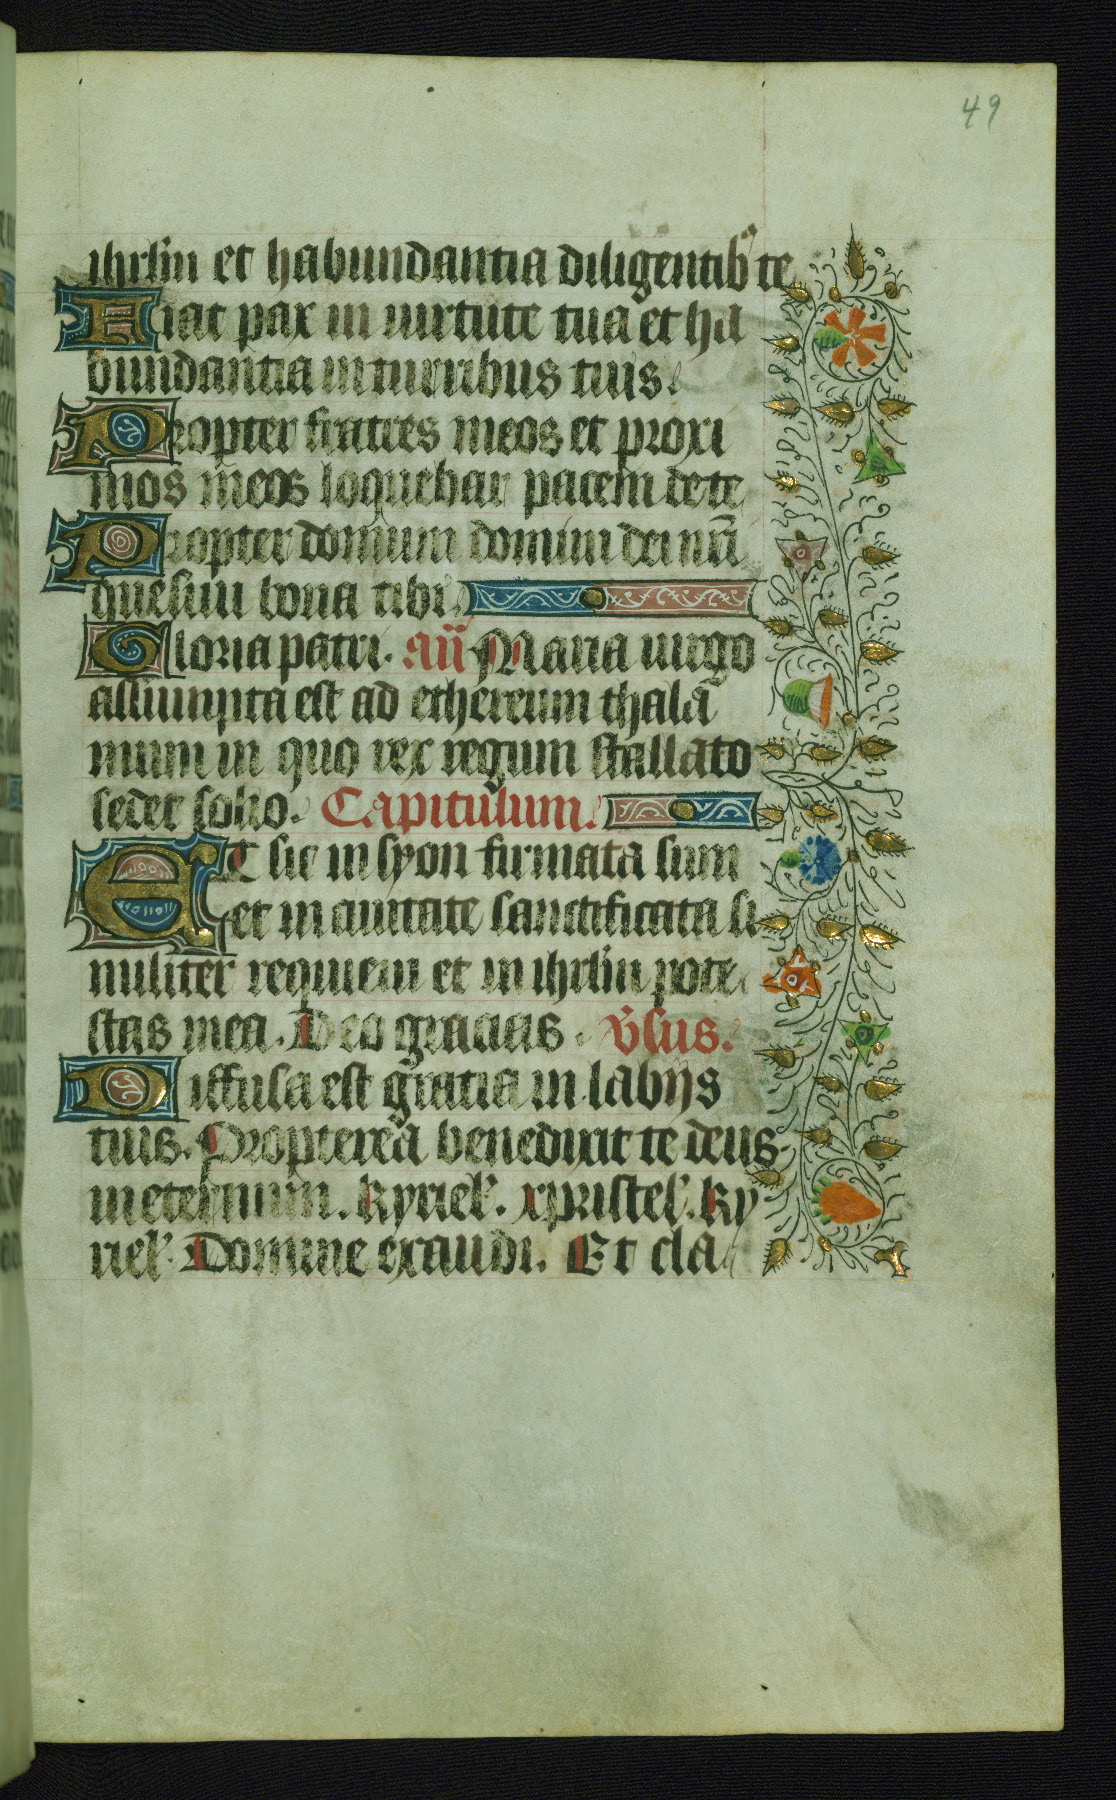 49
ihrl̄m et habundantia diligentib᷒ te
Fiat pax in uirtute tua et ha
bundantia in turribus tuis.
Propter fratres meos et proxi
mos meos loquebar pacem de te
Propter domum domini dei nr̄i
quesiui bona tibi.
Gloria patri. an̄ Maria uirgo
assumpta est ad ethereum thala᷒
mum in quo rex regum stellato
sedet solio. Capitulum.
ET sic in syon firmata sum
et in ciuitate sanctificata si
militer requieui et in ihrl̄m pote
stas mea. Deo gracias. v̄sus.
Diffusa est gratia in labijs
tuis. Propterea benedixit te deus
in eternum. kyriel᷒. xpristel᷒. ky
riel᷒. Domine exaudi. Et cla